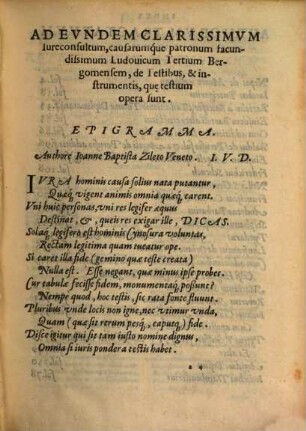 AD EVNDEM CLARISSIMVM
Iureconsultum, causarumque patronum facun
dissimum Ludouicum Tertium Ber-
gomensem, de Testibus, & in-
strumentis, que testium
opera sunt.
EPIGRAMMA.
Authore Ioanne Baptista Zileto Veneto. I. V. D.
IVRA hominis causa solius nata putantur,
Quæq; vigent animis omnia quæq; carent.
Vni huic personas, vni res legifer æquus
Destinat, &, queis res exigat ille, DICAS.
Solaq; legiferis est hominis Cynosura voluntas,
Rectam legitima quam mouet ope.
Si caret illa fide (gemino quæ teste creata)
Nulla est. Esse negant, quæ minus ipse probet.
Cur tabulæ fecisse fidem, monumentaq; possunt?
Nempe quod, hoc testis, sic rata fonte fluunt.
Pluribus vnde locis non igne, nec vtimur vnda,
Quam (quæ sit rerum pesq;, caputq;) fide.
Disce igitur qui sit tam iusto nomine dignus,
Omnia si iuris pondera testis habet.